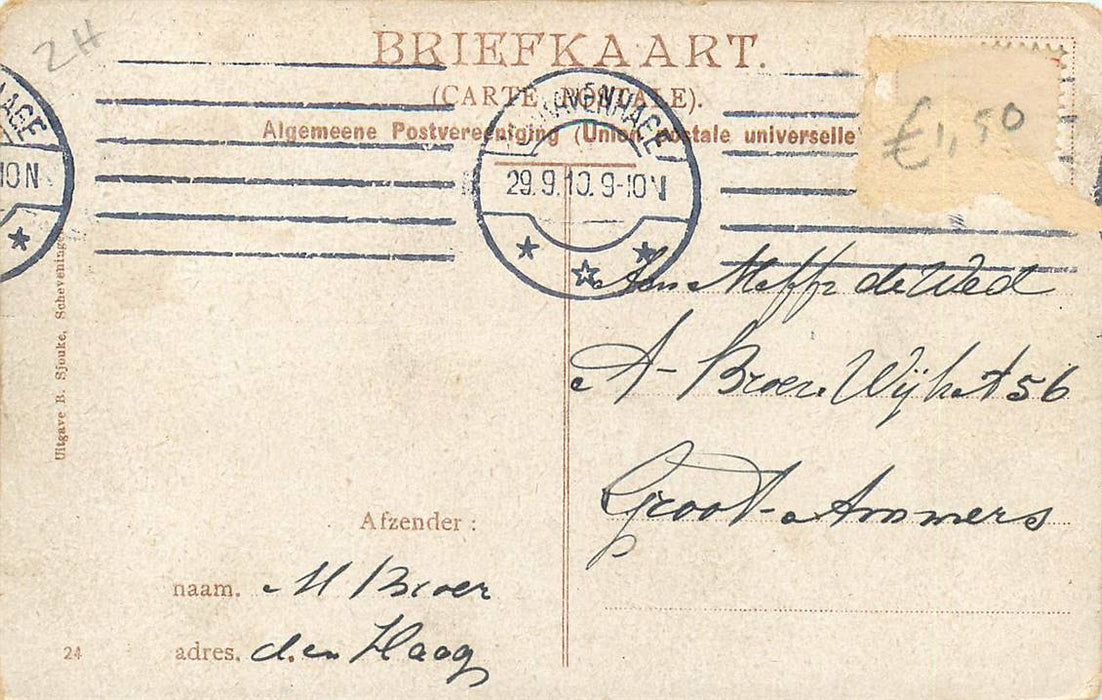 ZH
BRIEFKAART.
(CARTE POSTALE).
Algemeene Postvereeniging (Union postale universelle
£1,50
HAGE
10N
'S GRAVENHAGE
29.9.10. 9-10V
Uitgave B. Sjouke, Scheveningen
Aan Meffr de Wed
A- Broer. Wijk A 56
Groot-Ammers
Afzender :
naam. M Broer
adres. den Haag
24